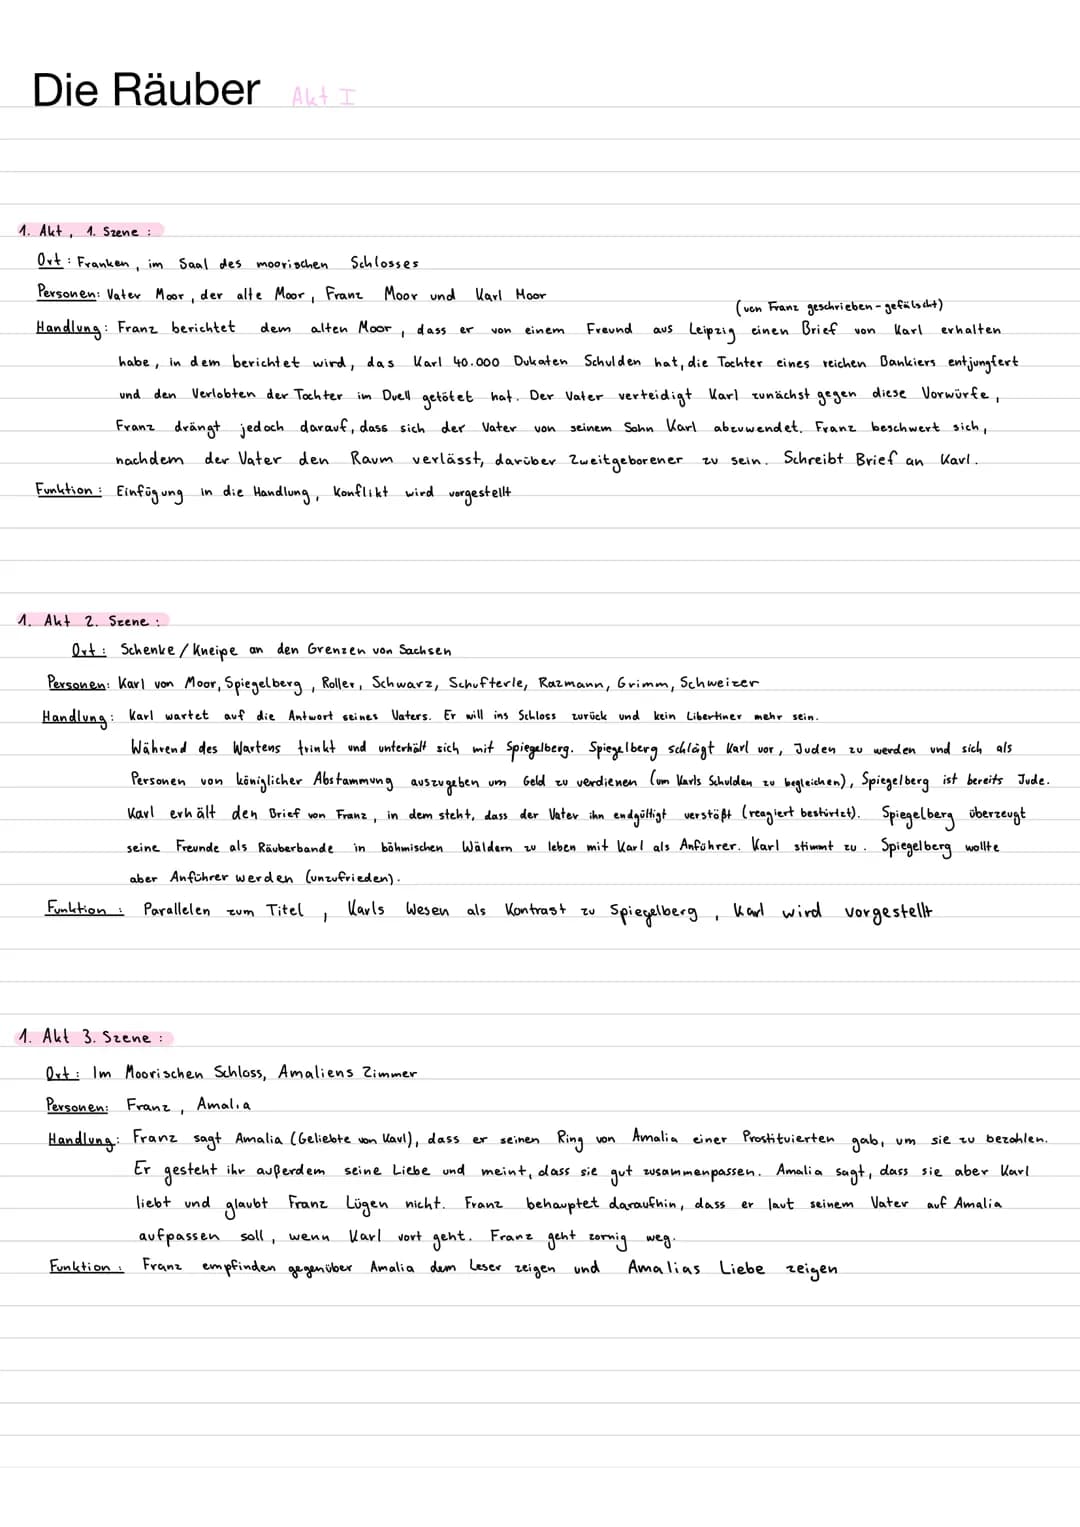 Die Räuber Akt I
1. Akt, 1. Szene :
Ort : Franken, im Saal des moorischen Schlosses
Personen: Vater Moor, der alte Moor, Franz Moor und Karl Moor
(von Franz geschrieben - gefälscht)
Handlung: Franz berichtet dem alten Moor, dass er von einem Freund aus Leipzig einen Brief von Karl erhalten
habe, in dem berichtet wird, das Karl 40.000 Dukaten Schulden hat, die Tochter eines reichen Bankiers entjungfert
und den Verlobten der Tochter im Duell getötet hat. Der Vater verteidigt Karl zunächst gegen diese Vorwürfe,
Franz drängt jedoch darauf, dass sich der Vater von seinem Sohn Karl abzuwendet. Franz beschwert sich,
nachdem der Vater den Raum verlässt, darüber Zweitgeborener zu sein. Schreibt Brief an Karl.
Funktion : Einfügung in die Handlung, Konflikt wird vorgestellt
1. Akt 2. Szene :
Ort : Schenke / Kneipe an den Grenzen von Sachsen
Personen: Karl von Moor, Spiegelberg, Roller, Schwarz, Schufterle, Razmann, Grimm, Schweizer
Handlung : Karl wartet auf die Antwort seines Vaters. Er will ins Schloss zurück und kein Libertiner mehr sein.
Während des Wartens trinkt und unterhält sich mit Spiegelberg. Spiegelberg schlägt Karl vor, Juden zu werden und sich als
Personen von königlicher Abstammung auszugeben um Geld zu verdienen (um Karls Schulden zu begleichen), Spiegelberg ist bereits Jude.
Karl erhält den Brief von Franz, in dem steht, dass der Vater ihn endgültigt verstößt (reagiert bestürtzt). Spiegelberg überzeugt
seine Freunde als Räuberbande in böhmischen Wäldern zu leben mit Karl als Anführer. Karl stimmt zu. Spiegelberg wollte
aber Anführer werden (unzufrieden).
Funktion : Parallelen zum Titel, Karls Wesen als Kontrast zu Spiegelberg, Karl wird vorgestellt
1. Akt 3. Szene :
Ort : Im Moorischen Schloss, Amaliens Zimmer
Personen: Franz, Amalia
Handlung : Franz sagt Amalia (Geliebte von Karl), dass er seinen Ring von Amalia einer Prostituierten gab, um sie zu bezahlen.
Er gesteht ihr außerdem seine Liebe und meint, dass sie gut zusammenpassen. Amalia sagt, dass sie aber Karl
liebt und glaubt Franz Lügen nicht. Franz behauptet daraufhin, dass er laut seinem Vater auf Amalia
aufpassen soll, wenn Karl vort geht. Franz geht zornig weg.
Funktion : Franz empfinden gegenüber Amalia dem Leser zeigen und Amalias Liebe zeigen